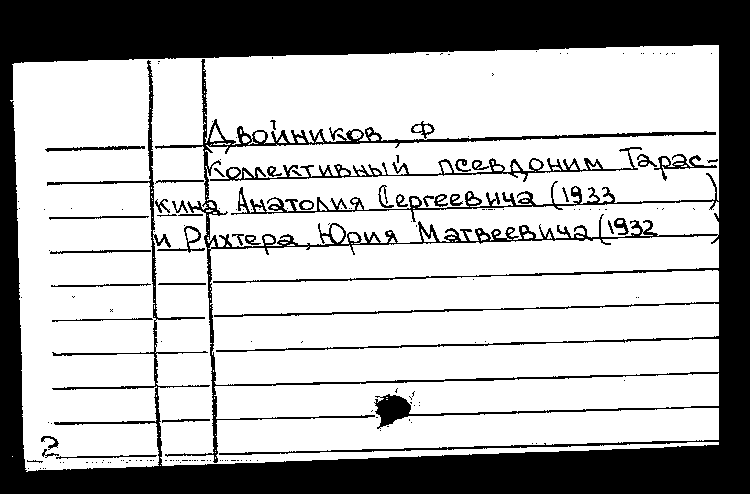 Двойников, Ф
Коллективный псевдоним Тарас-
кина Анатолия Сергеевича (1933 )
и Рихтера, Юрия Матвеевича (1932 )
2